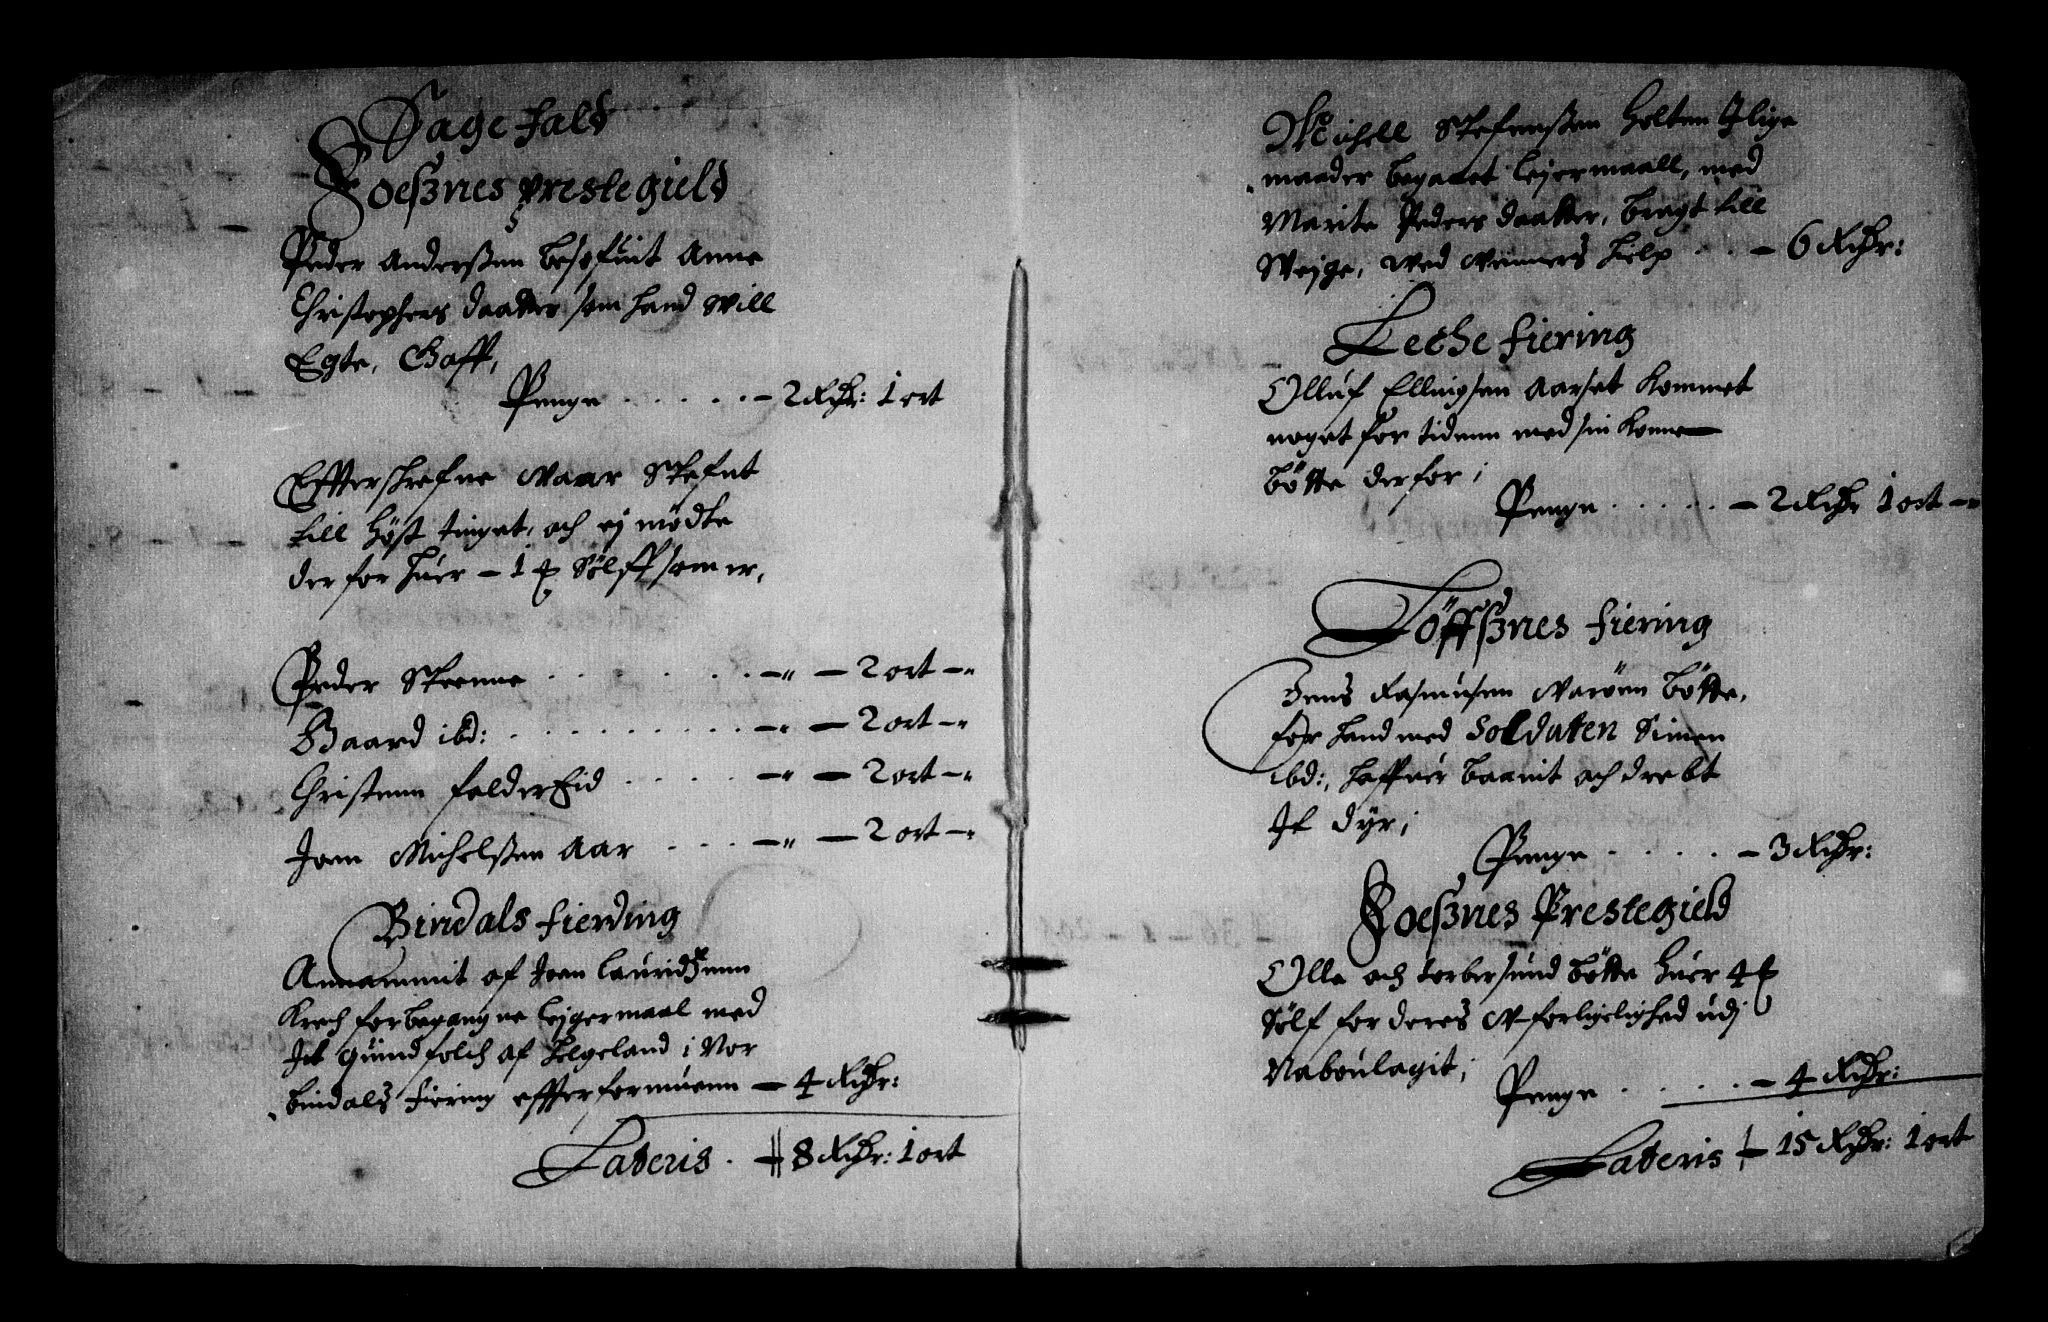 Sagefald
Foeßnes prestegield
Peder Anderßen besofuit Anne
Christophers daatter som hand will
Egte, Gaff,
Penge ..... – 2 Rdr: 1 ort
Effterschrefne Waar Stefnt
till Höst tinget, och ej mödte
der for huer – 1 Sölff som er,
Peder Steenne – „ – 2 ort – „
Baard ibd: – „ – 2 ort – „
Christenn felderEid – „ – 2 ort – „
Joen Michelßen Aar – „ – 2 ort – „
Bindals fierding
Annammit af Joen Lauridzenn
Krech forbegangne Lejgermaal med
Jt quindfolch af Helgeland i Nor
bindals fiering effter formuenn – 4 Rdr:
Lateris . – 8 Rdr: 1 ort
Michell Stefenßen Holten Jlige
maader begaaet Lejermaall, med
Marite Peders daatter, bragt till
Weyge, wed wenners hielp – 6 Rdr:
Leche fiering
Olluf Ellingsen Aarset kommet
noget for tidenn med sin konne
bötte derfor;
Penge ..... – 2 Rdr 1 ort – „
Töffßnes fiering
Jens Rasmusen Waröen bötte,
for hand med Soldaten Simen
ibd:, haffuer baanit och drebt
Jt dyr;
Penge .... – 3 Rdr:
Foeßnes Prestegield
Olle och torbersund bötte huer 4
Sölf for deres Wforligelighed udj
Naboulagit;
Penge .... – 4 Rdr:
Lateris – 15 Rdr: 1 ort